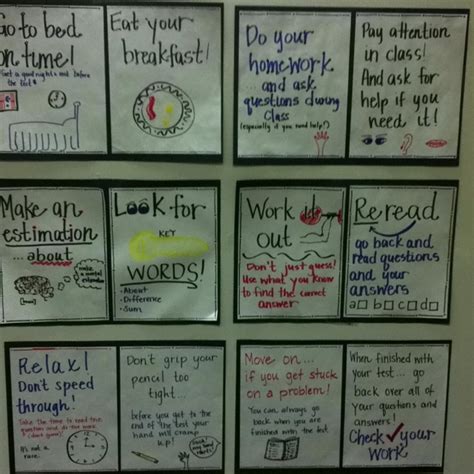 Go to bed
on time!
Get a good night's rest before
the test
Eat your
breakfast!
Do your
homework
...and ask
questions during
class
(especially if you need help!)
Pay attention
in class!
And ask for
help if you
need it!
Make an
estimation
...about
make a mental
estimation
Look for
KEY
WORDS!
- About
- Difference
- Sum
Work it
out
Don't just guess!
Use what you know
to find the correct
answer
Reread
go back and
read questions
and your
answers
a b c d
Relax!
Don't speed
through!
Take the time to read the
question and do the work.
It's not a
race.
Don't grip your
pencil too
tight...
before you get to the
end of the test your
hand will cramp
up!
Move on...
if you get stuck
on a problem!
You can always go
back when you are
finished with the test
When finished with
your test... go
back over all of
your questions and
answers!
Check your
work!